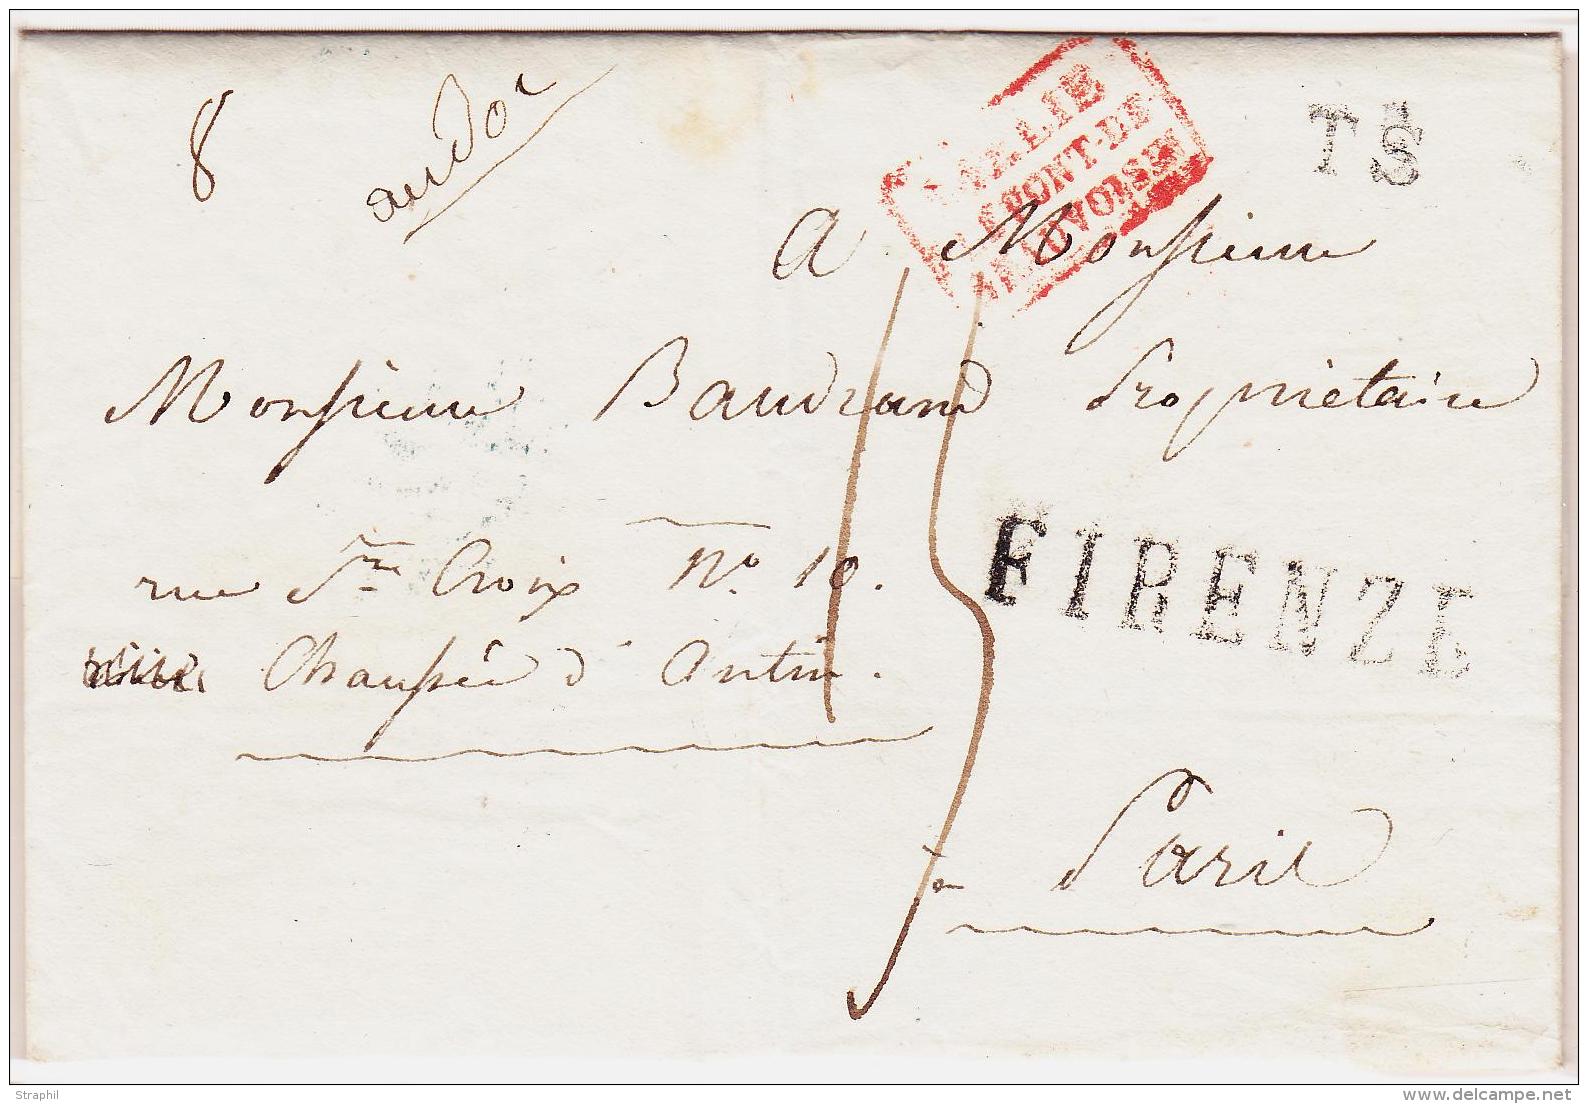 8
T.S
ITALIE
PONT-DE-
BEAUVOISIN
A Monsieur
Monsieur Baudrand Propriétaire
rue Ste Croix N° 10.
Chaussée d'Antin.
FIRENZE
15
Paris
Straphil
www.delcampe.net